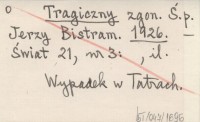 o
Tragiczny zgon. Ś.p.
Jerzy Bistram. 1926.
Świat 21, nr 3: , il.
Wypadek w Tatrach.